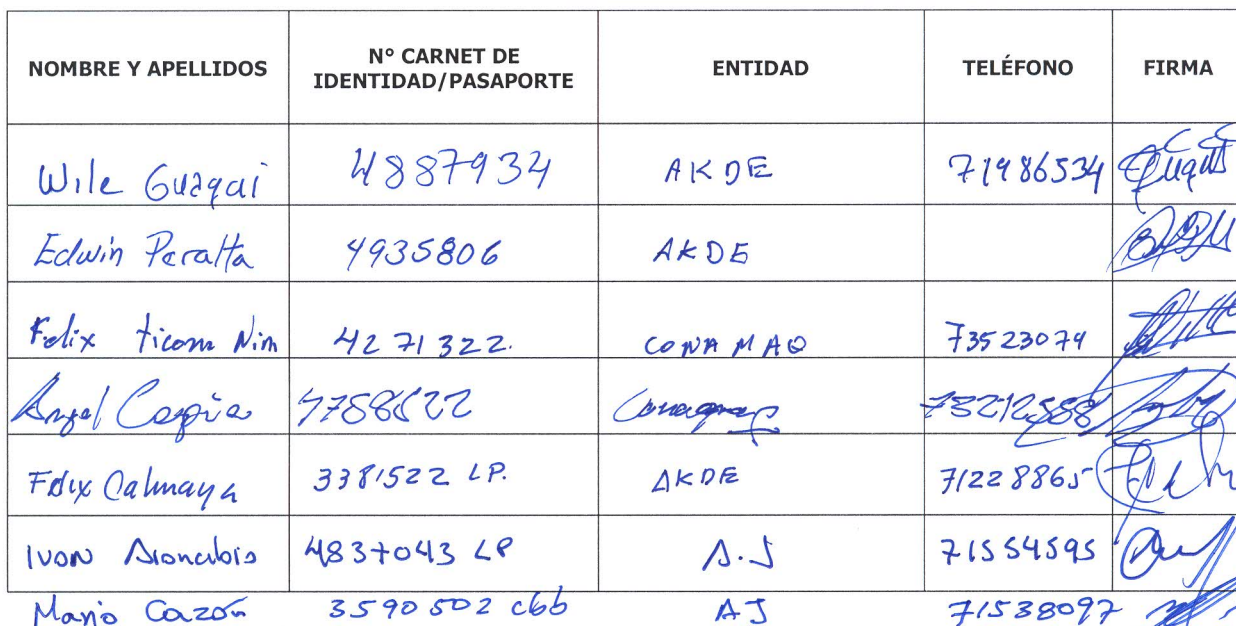 NOMBRE Y APELLIDOS N° CARNET DE IDENTIDAD/PASAPORTE ENTIDAD TELÉFONO FIRMA
Wile Guaqui 4887934 AKDE 71986534
Edwin Peralta 4935806 AKDE
Felix ticona Nin 4271322. CONAMAQ 73523079
Angel 
Felix Calmaya 3381522 LP. AKDE 71228865
IVON 4837043 LP A.J 71554595
Mario Cazón 3590502 cbb AJ 71538097